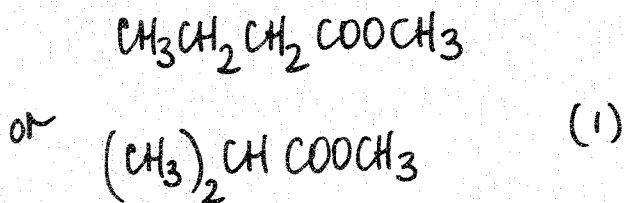 CH₃CH₂CH₂COOCH₃
or (CH₃)₂CHCOOCH₃ (1)